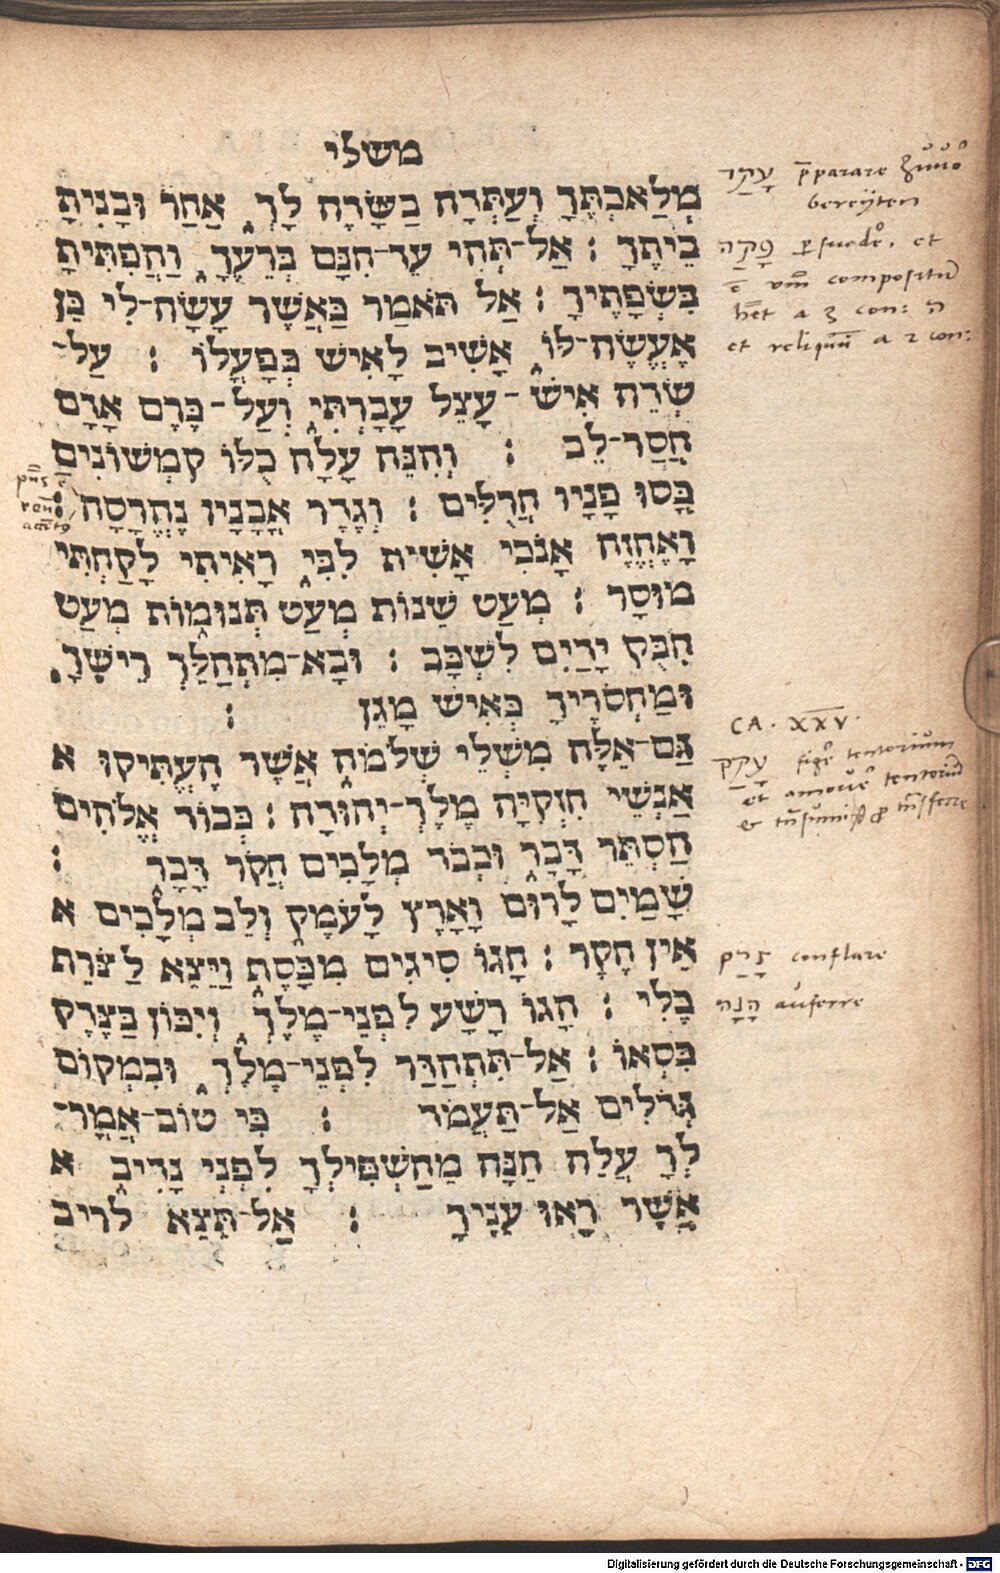 משלי
מְלַאכְתֶּךָ וְעַתְּדָהּ בַּשָּׂדֶה לָךְ אַחַר וּבָנִיתָ
בֵיתֶךָ : אַל־תְּהִי עֵד־חִנָּם בְּרֵעֶךָ וַהֲפִתִּיתָ
בִּשְׂפָתֶיךָ : אַל תֹּאמַר כַּאֲשֶׁר עָשָׂה־לִי כֵּן
אֶעֱשֶׂה־לּוֹ אָשִׁיב לָאִישׁ כְּפָעֳלוֹ : עַל־
שְׂדֵה אִישׁ־עָצֵל עָבַרְתִּי וְעַל־כֶּרֶם אָדָם
חֲסַר־לֵב : וְהִנֵּה עָלָה כֻלּוֹ קִמְּשׂוֹנִים
כָּסּוּ פָנָיו חֲרֻלִּים : וְגֶדֶר אֲבָנָיו נֶהֱרָסָה :
וָאֶחֱזֶה אָנֹכִי אָשִׁית לִבִּי רָאִיתִי לָקַחְתִּי
מוּסָר : מְעַט שֵׁנוֹת מְעַט תְּנוּמוֹת מְעַט
חִבֻּק יָדַיִם לִשְׁכָּב : וּבָא־מִתְהַלֵּךְ רֵישֶׁךָ
וּמַחְסֹרֶיךָ כְּאִישׁ מָגֵן :
גַּם־אֵלֶּה מִשְׁלֵי שְׁלֹמֹה אֲשֶׁר הֶעְתִּיקוּ א
אַנְשֵׁי חִזְקִיָּה מֶלֶךְ־יְהוּדָה : כְּבוֹד אֱלֹהִים
הַסְתֵּר דָּבָר וּכְבֹד מְלָכִים חֲקֹר דָּבָר :
שָׁמַיִם לָרוּם וָאָרֶץ לָעֹמֶק וְלֵב מְלָכִים א
אֵין חֵקֶר : הָגוֹ סִיגִים מִכָּסֶף וַיֵּצֵא לַצֹּרֵף
כֶּלִי : הָגוֹ רָשָׁע לִפְנֵי־מֶלֶךְ וְיִכּוֹן בַּצֶּדֶק
כִּסְאוֹ : אַל־תִּתְהַדַּר לִפְנֵי־מֶלֶךְ וּבִמְקוֹם
גְּדֹלִים אַל־תַּעֲמֹד : כִּי טוֹב־אֲמָר־
לְךָ עֲלֵה הֵנָּה מֵהַשְׁפִּילְךָ לִפְנֵי נָדִיב א
אֲשֶׁר רָאוּ עֵינֶיךָ : אַל־תֵּצֵא לריב
עָתַד p̄parare
bereÿten
פָתָה
compositū
a 3 con:
et a 2 con:
CA. XXV.
עָתַק figēr tentorium
et amovēr tentoriū
צָרַף conflare
הָגָה auferre
Digitalisierung gefördert durch die Deutsche Forschungsgemeinschaft - DFG